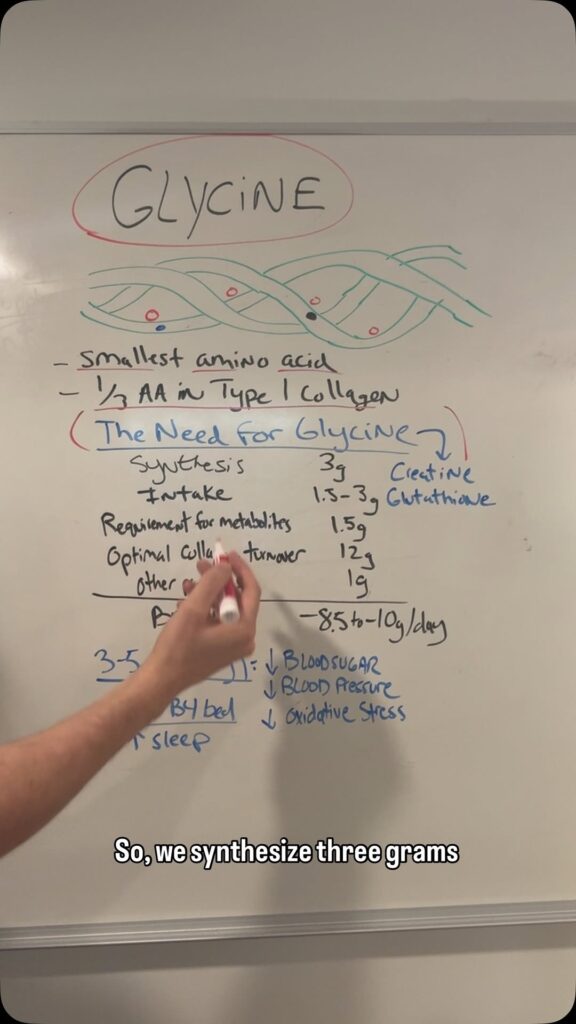 GLYCINE
- Smallest amino acid
- 1/3 AA in Type 1 Collagen
The Need For Glycine
Synthesis 3g
Creatine
Intake 1.5-3g
Glutathione
Requirement for metabolites 1.5g
Optimal colla turnover 12g
other 1g
-8.5 to -10g/day
3-5 : ↓ BLOODSUGAR
↓ BLOOD Pressure
B4 bed ↓ Oxidative Stress
↑ sleep
So, we synthesize three grams